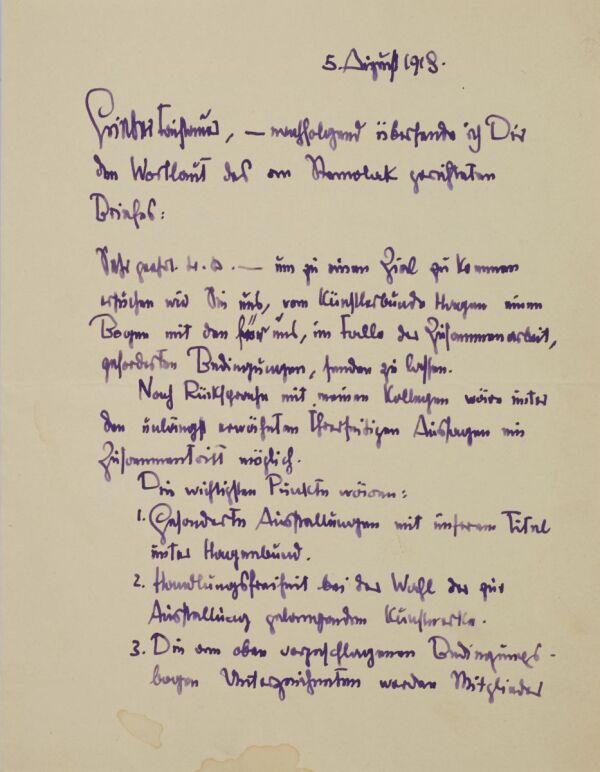 5. August 1918.
Lieber Faistauer, — nachfolgend übersende ich Dir
den Wortlaut des an Stemolak gerichteten
Briefes:
Sehr geehrt. — um zu einem Ziel zu kommen
ersuchen wir Sie uns, vom Künstlerbunde Hagen einen
Bogen mit den für uns, im Falle der Zusammenarbeit,
geforderten Bedingungen, senden zu lassen.
Nach Rücksprache mit meinen Kollegen wäre unter
den unlängst erwähnten Ihrerseitigen Aussagen ein
Zusammentritt möglich.
Die wichtigsten Punkte wären:
1. Gesonderte Ausstellungen mit unserem Titel
unter Hagenbund.
2. Handlungsfreiheit bei der Wahl der zur
Ausstellung gelangenden Kunstwerke.
3. Die am oben vorgeschlagenen Bedingungs-
bogen Unterzeichneten werden Mitglieder